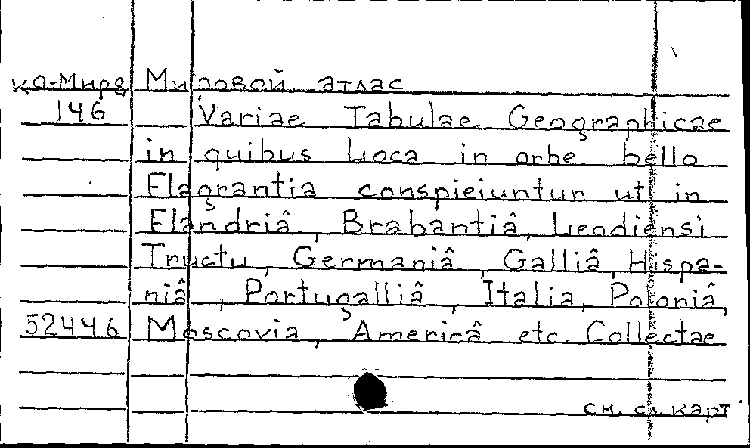 КО-Мира Мировой атлас
146 Variae Tabulae Geographicae
in quibus Loca in orbe bello
Flagrantia conspieiuntur ut in
Flandriâ, Brabantiâ, Leodiensi
Tructu, Germaniâ, Galliâ, Hispa-
niâ, Portugalliâ, Italia, Poloniâ,
52446 Moscovia, Americâ etc. Collectae
см. сл. карт